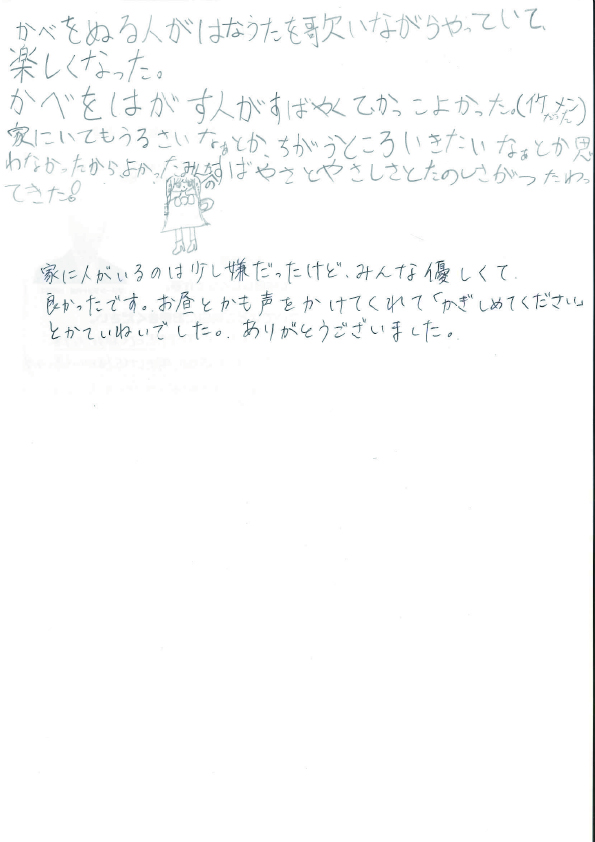 かべをぬる人がはなうたを歌いながらやっていて、
楽しくなった。
かべをはがす人がすばやくてかっこよかった。(イケメンだった)
家にいてもうるさいなぁとか、ちがうところいきたいなぁとか思
わなかったからよかった。みんなのすばやさとやさしさとたのしさがつたわっ
てきた!
家に人がいるのは少し嫌だったけど、みんな優しくて
良かったです。お昼とかも声をかけてくれて「かぎしめてください」
とかていねいでした。ありがとうございました。